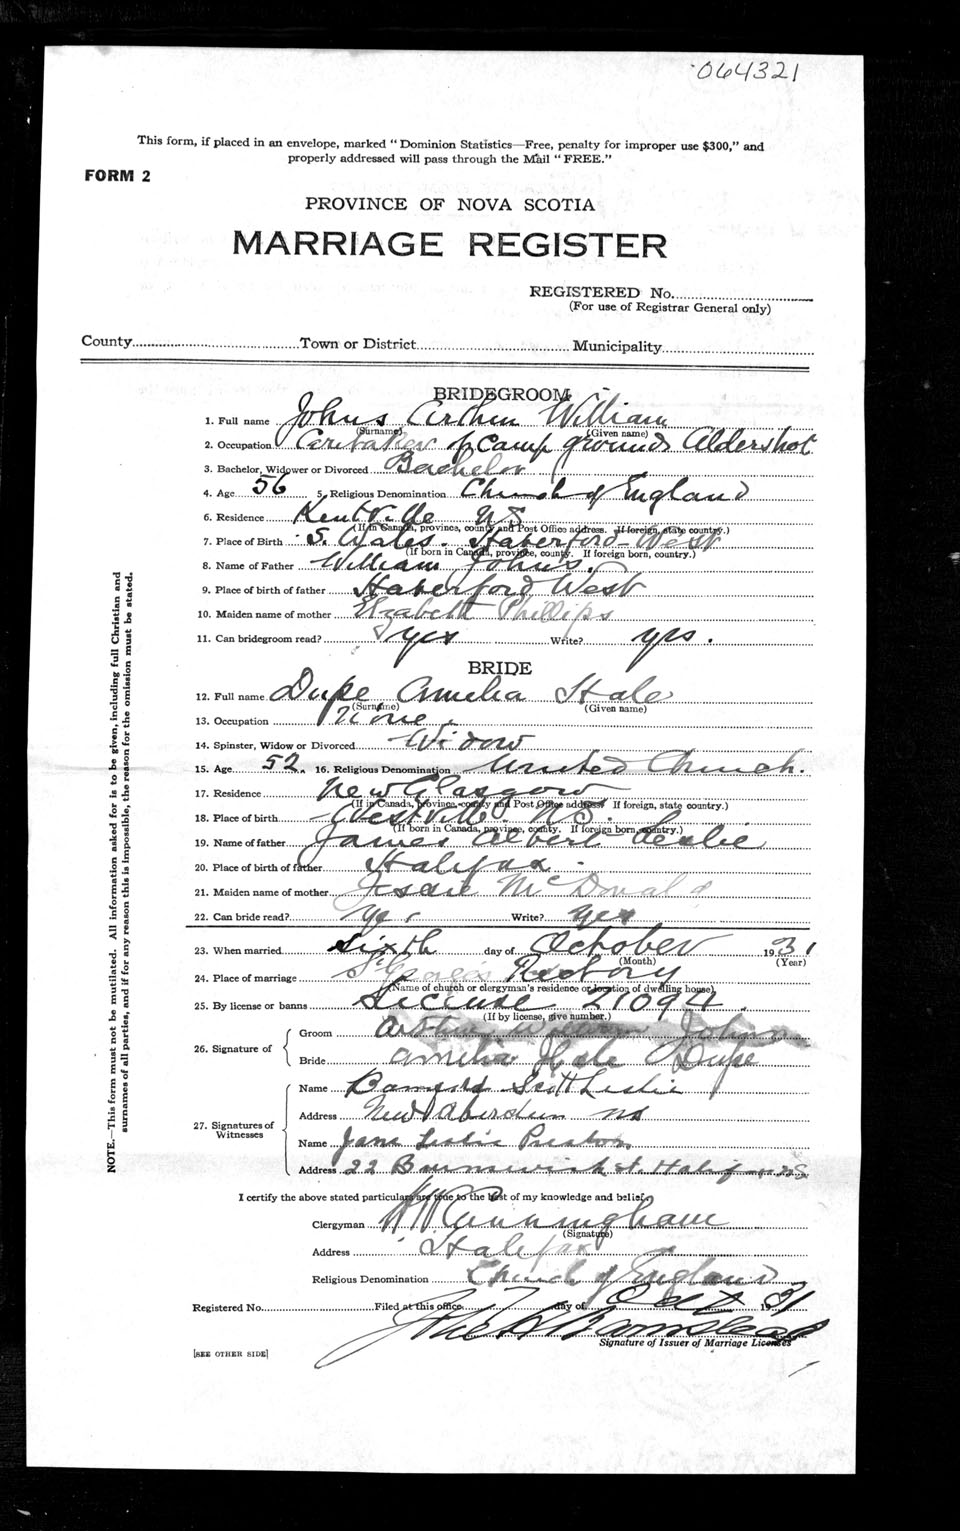 064321
This form, if placed in an envelope, marked "Dominion Statistics—Free, penalty for improper use $300," and
properly addressed will pass through the Mail "FREE."
FORM 2
PROVINCE OF NOVA SCOTIA
MARRIAGE REGISTER
REGISTERED No.
(For use of Registrar General only)
County Town or District Municipality
BRIDEGROOM
1. Full name Johns Arthur William
(Surname) (Given name)
2. Occupation Caretaker of Camp grounds Aldershot
3. Bachelor, Widower or Divorced Bachelor
4. Age 56 5. Religious Denomination Church of England
6. Residence Kentville NS
(If in Canada, province, county and Post Office address. If foreign, state country.)
7. Place of Birth S. Wales. Haverford-West
(If born in Canada, province, county. If foreign born, country.)
8. Name of Father William Johns.
9. Place of birth of father Haverford West
10. Maiden name of mother Elizabeth Phillips
11. Can bridegroom read? yes Write? yes.
BRIDE
12. Full name Dupe Amelia Hale
(Surname) (Given name)
13. Occupation None.
14. Spinster, Widow or Divorced Widow
15. Age 52. 16. Religious Denomination United Church.
17. Residence New Glasgow
(If in Canada, province, county and Post Office address If foreign, state country.)
18. Place of birth Westville. NS.
(If born in Canada, province, county. If foreign born, country.)
19. Name of father James Albert Leslie
20. Place of birth of father Halifax.
21. Maiden name of mother Jessie McDonald
22. Can bride read? Yes Write? yes
23. When married sixth day of October 1931
(Month) (Year)
24. Place of marriage St Georges Rectory
(Name of church or clergyman's residence or location of dwelling house)
25. By license or banns License 21094.
(If by license, give number.)
26. Signature of
Groom Arthur William Johns
Bride Amelia Hale Dupe
27. Signatures of Witnesses
Name Scott Leslie
Address New Aberdeen NS
Name Jane Leslie Preston
Address 22 Brunswick St. Halifax NS
I certify the above stated particulars are true to the best of my knowledge and belief.
Clergyman Cunningham
(Signature)
Address Halifax
Religious Denomination Church of England
Registered No. Filed at this office 7 day of Oct 1931
Signature of Issuer of Marriage Licenses
[SEE OTHER SIDE]
NOTE.—This form must not be mutilated. All information asked for is to be given, including full Christian and
surnames of all parties, and if for any reason this is impossible, the reason for the omission must be stated.